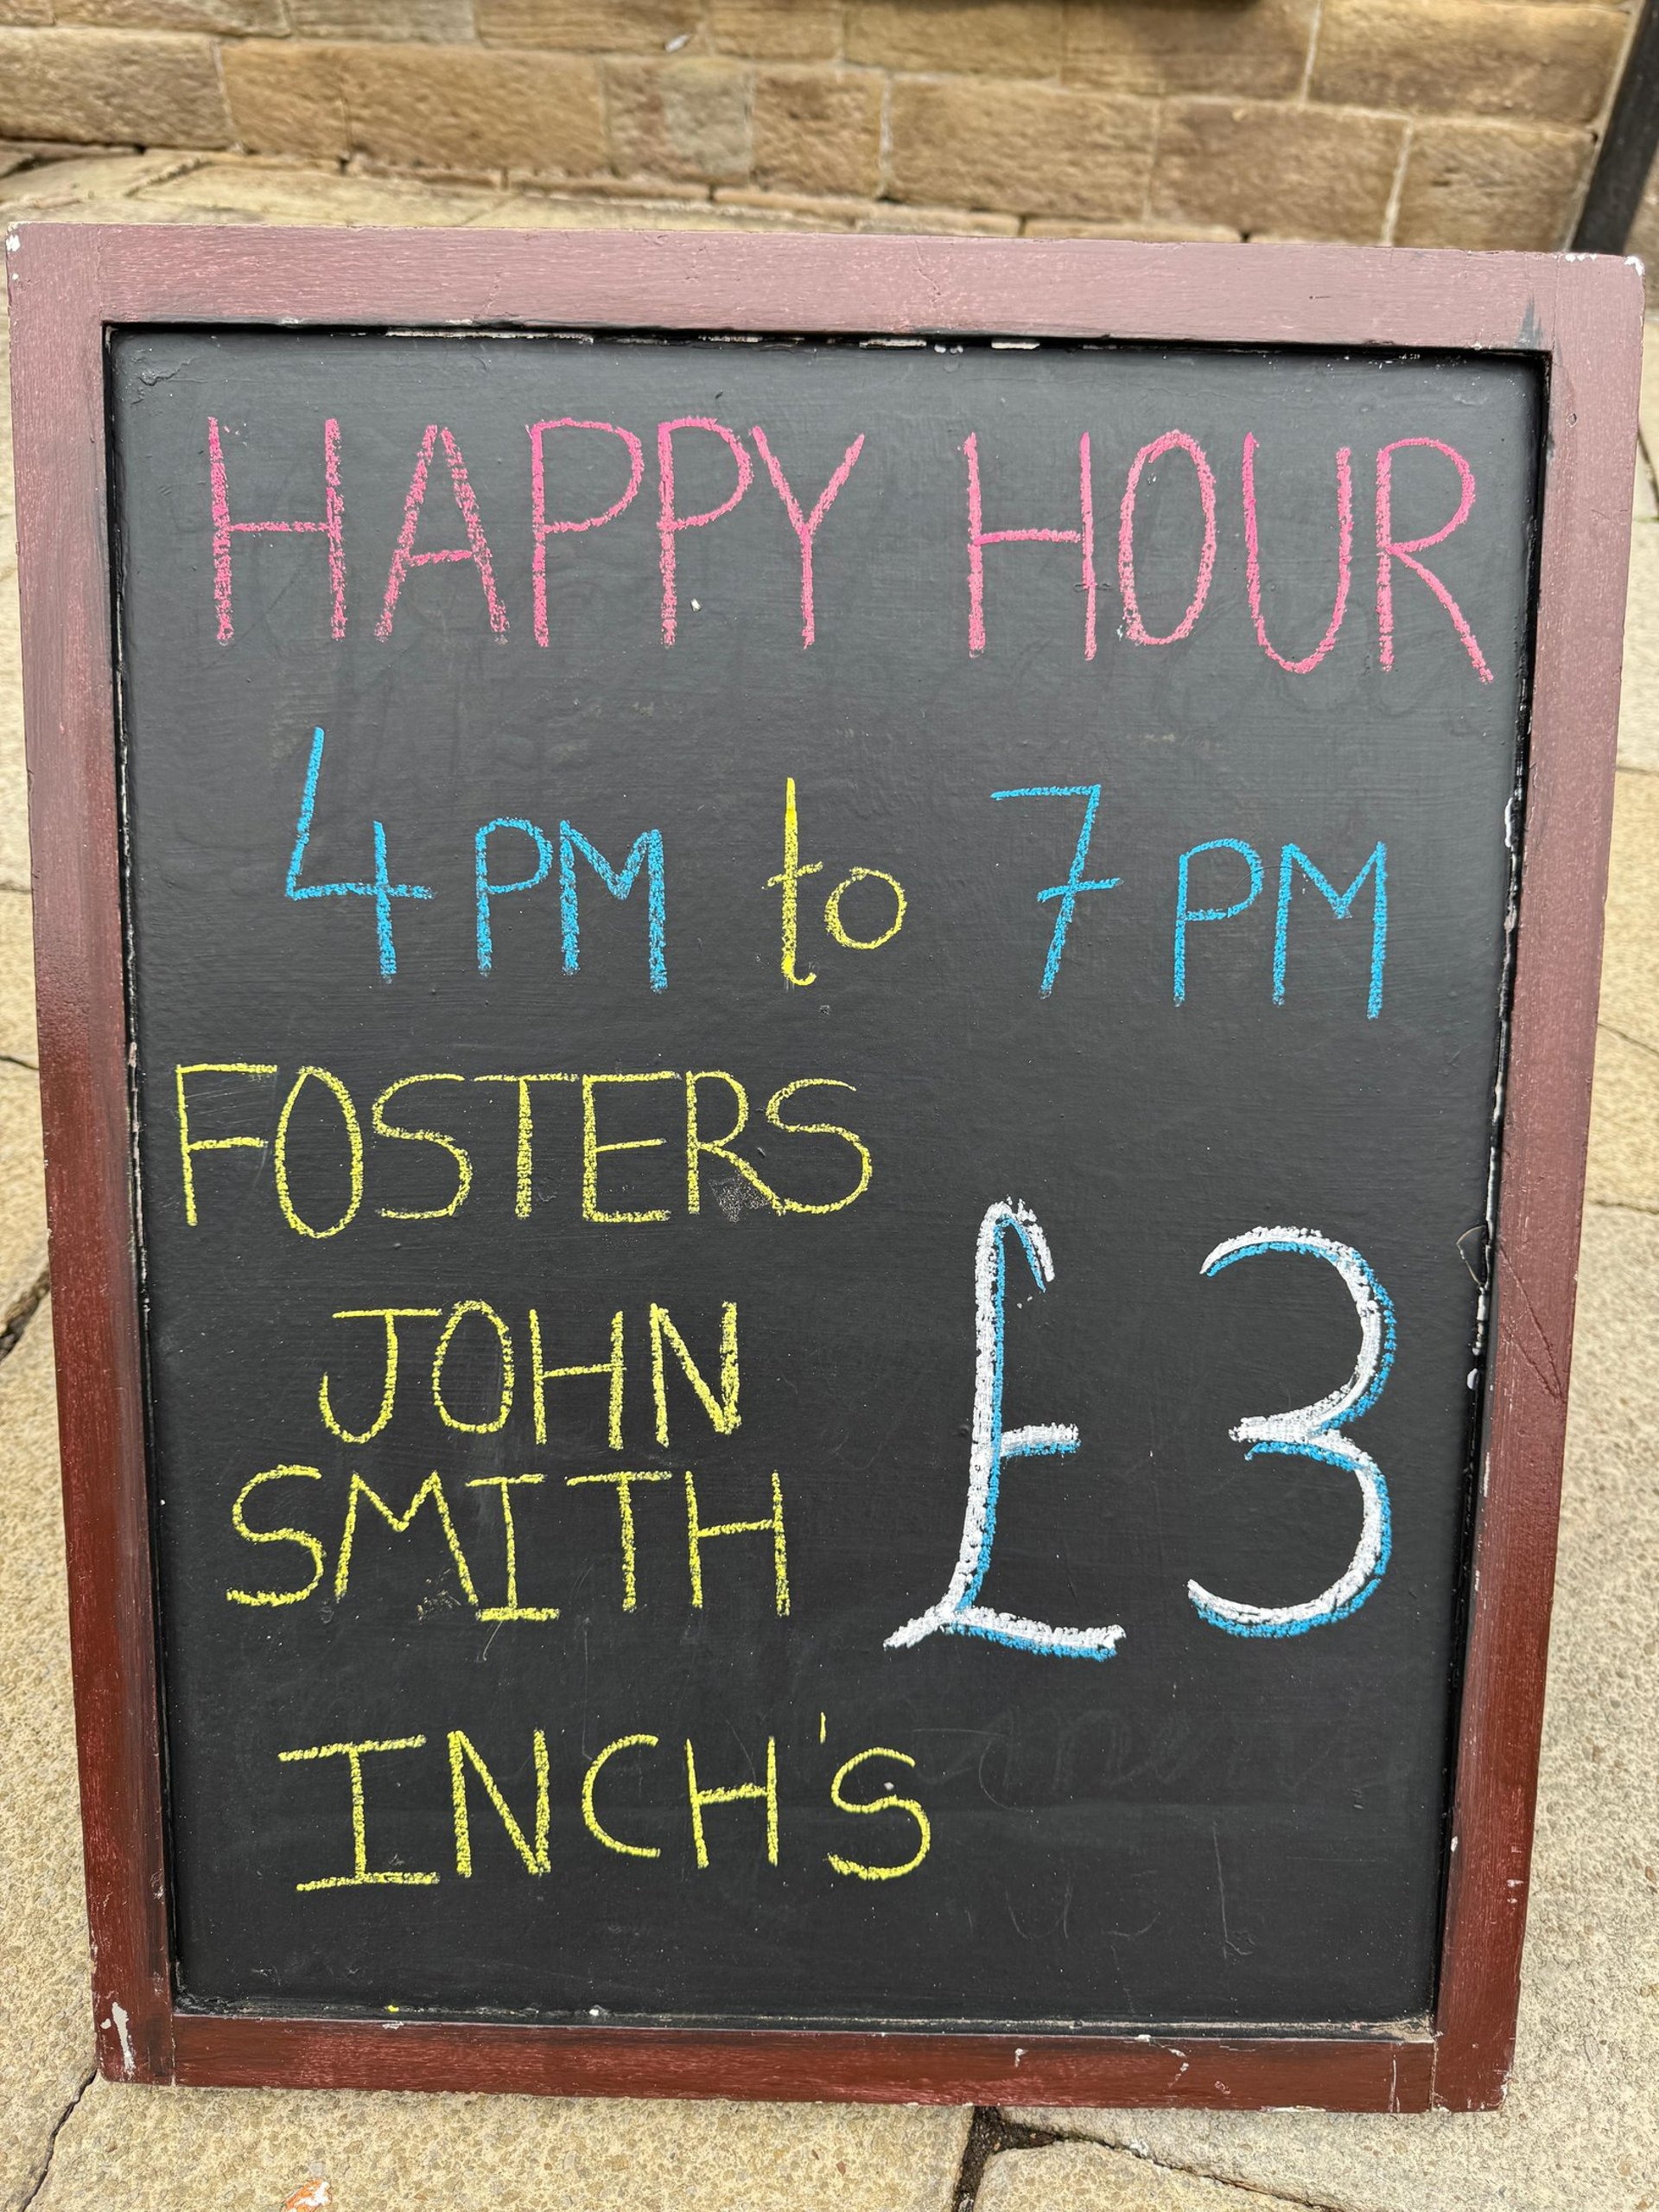 HAPPY HOUR
4PM to 7PM
FOSTERS
JOHN
SMITH
£3
INCH'S